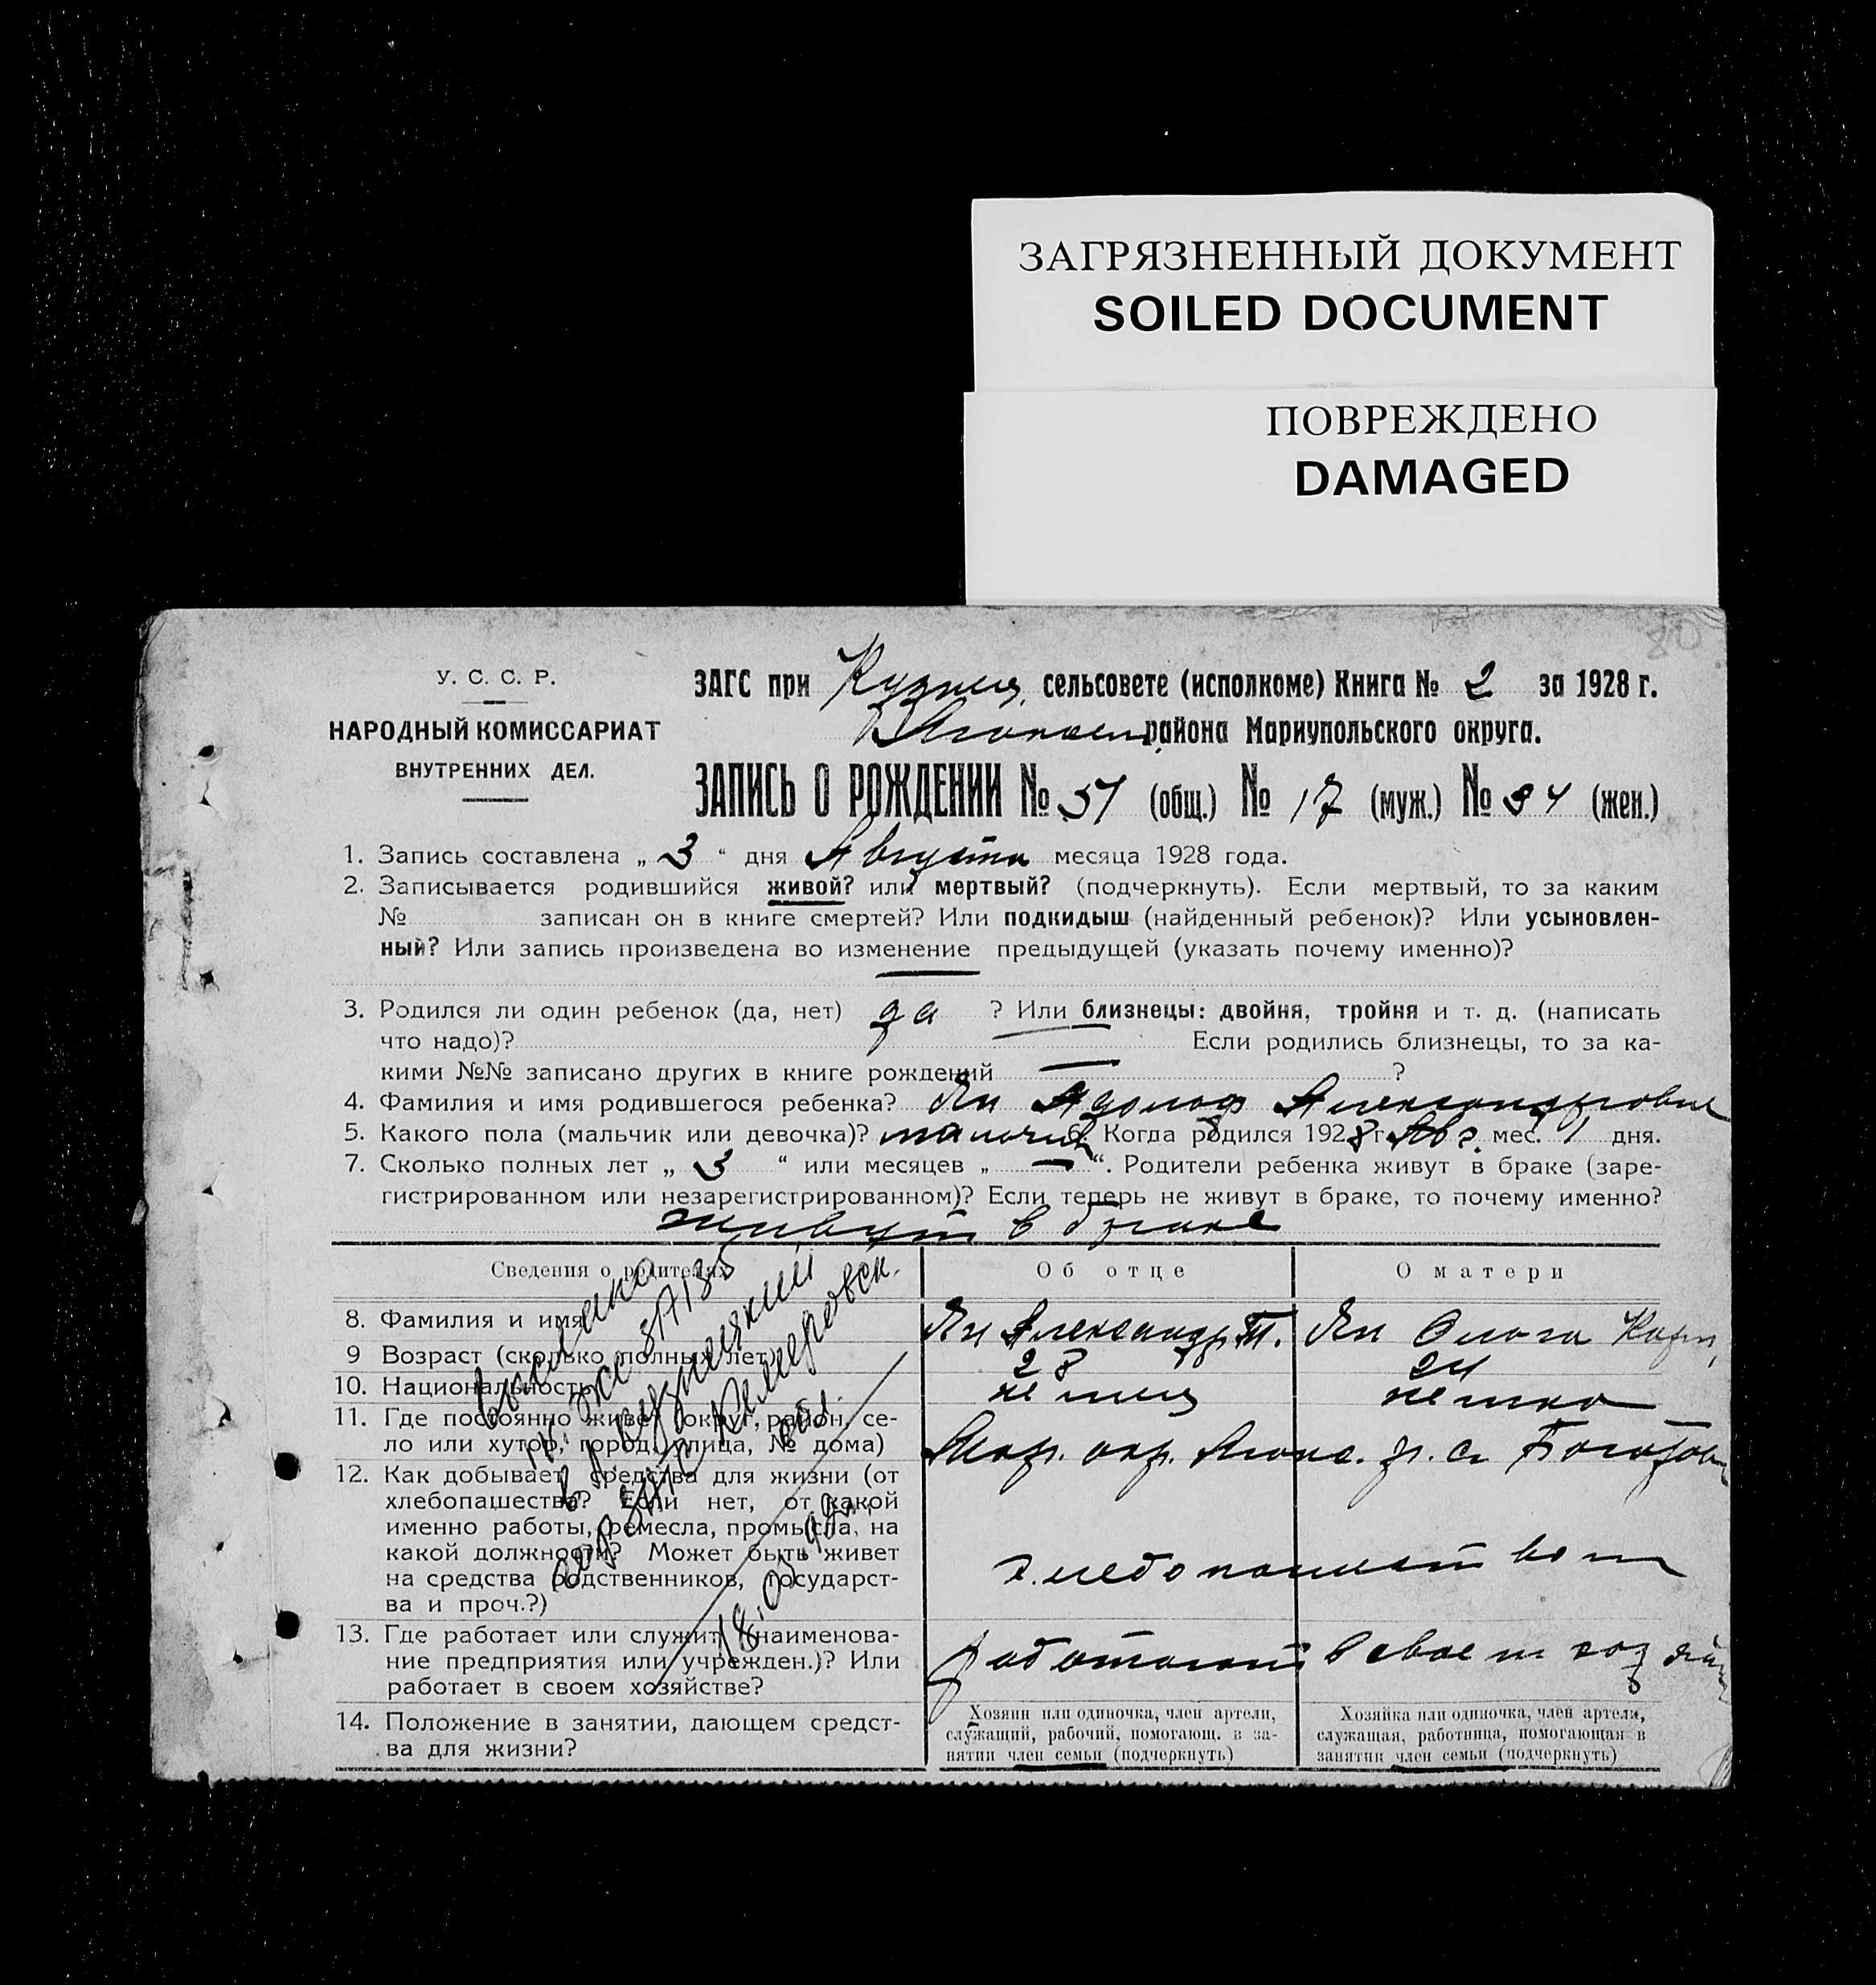 ЗАГРЯЗНЕННЫЙ ДОКУМЕНТ
SOILED DOCUMENT
ПОВРЕЖДЕНО
DAMAGED
80
У. С. С. Р.
НАРОДНЫЙ КОМИССАРИАТ
ВНУТРЕННИХ ДЕЛ.
ЗАГС при сельсовете (исполкоме) Книга № 2 за 1928 г.
района Мариупольского округа.
ЗАПИСЬ О РОЖДЕНИИ № (общ.) № 17 (муж.) № 34 (жен.)
1. Запись составлена „ 3 “ дня Августа месяца 1928 года.
2. Записывается родившийся живой? или мертвый? (подчеркнуть). Если мертвый, то за каким
№ записан он в книге смертей? Или подкидыш (найденный ребенок)? Или усыновлен-
ный? Или запись произведена во изменение предыдущей (указать почему именно)?
3. Родился ли один ребенок (да, нет) да ? Или близнецы: двойня, тройня и т. д. (написать
что надо)? Если родились близнецы, то за ка-
кими №№ записано других в книге рождений — ?
4. Фамилия и имя родившегося ребенка? Ян Адольф Александрович
5. Какого пола (мальчик или девочка)? мальчик 6. Когда родился 1928 г. Авг. мес. 1 дня.
7. Сколько полных лет „ 3 “ или месяцев „ — “. Родители ребенка живут в браке (заре-
гистрированном или незарегистрированном)? Если теперь не живут в браке, то почему именно?
живут в браке
Сведения о родителях
Об отце
О матери
8. Фамилия и имя
Ян Александр Т.
Ян Ольга Карл.
9 Возраст (сколько полных лет)
28
24
10. Национальность
немец
немка
11. Где постоянно живет округ, район, се-
ло или хутор, город, улица, № дома)
Мар. окр. с.
12. Как добывает средства для жизни (от
хлебопашества? Если нет, от какой
именно работы, ремесла, промысла, на
какой должности? Может быть живет
на средства родственников, государст-
ва и проч.?)
хлебопашеством
13. Где работает или служит (наименова-
ние предприятия или учрежден.)? Или
работает в своем хозяйстве?
работают в своем хозяй
14. Положение в занятии, дающем средст-
ва для жизни?
Хозяин или одиночка, член артели,
служащий, рабочий, помогающ. в за-
нятии член семьи (подчеркнуть)
Хозяйка или одиночка, член артели,
служащая, работница, помогающая в
занятии член семьи (подчеркнуть)
выслано
Кузнецкий
ЗАГС Кемеровск.
обл.